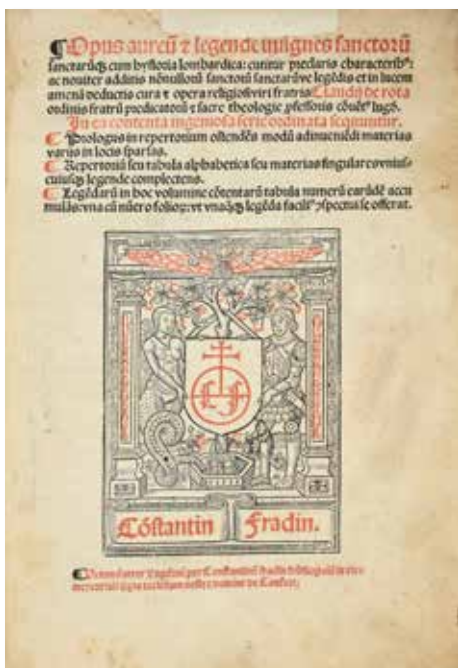 ¶Opus aureū ⁊ legende insignes sanctorū
sanctarūqꝫ cum hystoria lombardica: cuditur preclaris characteribꝰ:
ac noviter additis nōnulloꝝ sanctoꝝ sanctarūve legēdis et in lucem
amenā deductis cura ⁊ opera religiosi viri fratris Claudij de rota
ordinis fratrū predicatorū ⁊ sacre theologie ꝓfessoris cōvētꝰ lugd.
In ea contenta ingeniosa serie ordinata sequuntur.
¶ Prologus in repertorium ostendēs modū adinveniēdi materias
variis in locis sparsas.
¶ Repertoriū seu tabula alphabetica seu materias singulares unius-
cuiusqꝫ legende complectens.
¶ Legēdarū in hoc volumine cōtentarū tabula numerū earūdē accu
mulās: una cū nūero folioꝝ: ut unaqꝫqꝫ legēda facilꝰ ꝓspectui se offerat.
Cōstantin Fradin.
per Constantinū